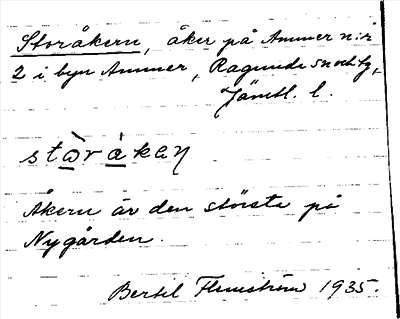 Storåkern, åker på Ammer n:r
2 i byn Ammer, Ragunda sn och tg,
Jämtl. l.
stɷ̀råkaɳ
Åkern är den största på
Nygården.
Bertil Flemström 1935.